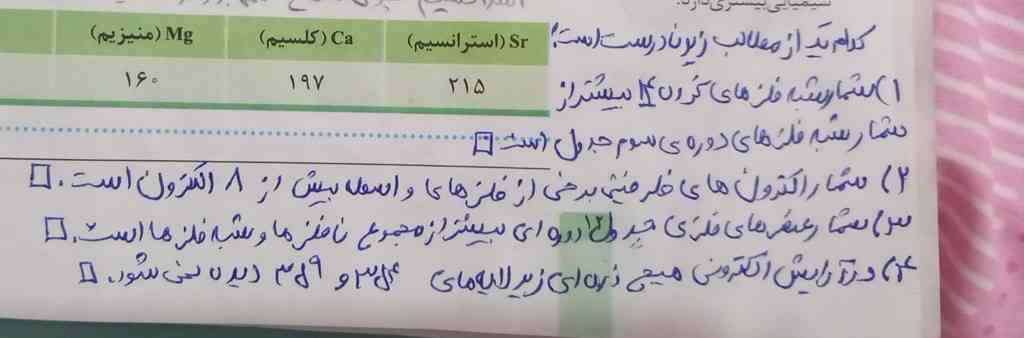 شیمیایی بیشتری دارد.
Sr (استرانسیم) Ca (کلسیم) Mg (منیزیم)
۲۱۵ ۱۹۷ ۱۶۰
کدام یک از مطالب زیر نادرست است؟
۱) شمار شبه فلزهای گروه ۱۴ بیشتر از
شمار شبه فلزهای دوره ی سوم جدول است.
۲) شمار الکترون های ظرفیتی برخی از فلزهای واسطه بیش از ۸ الکترون است.
۳) شمار عنصرهای فلزی جدول دوره ای بیشتر از مجموع نافلزها و شبه فلزها است.
۴) در آرایش الکترونی هیچ ذره ای زیرلایه های و دیده نمی شود.